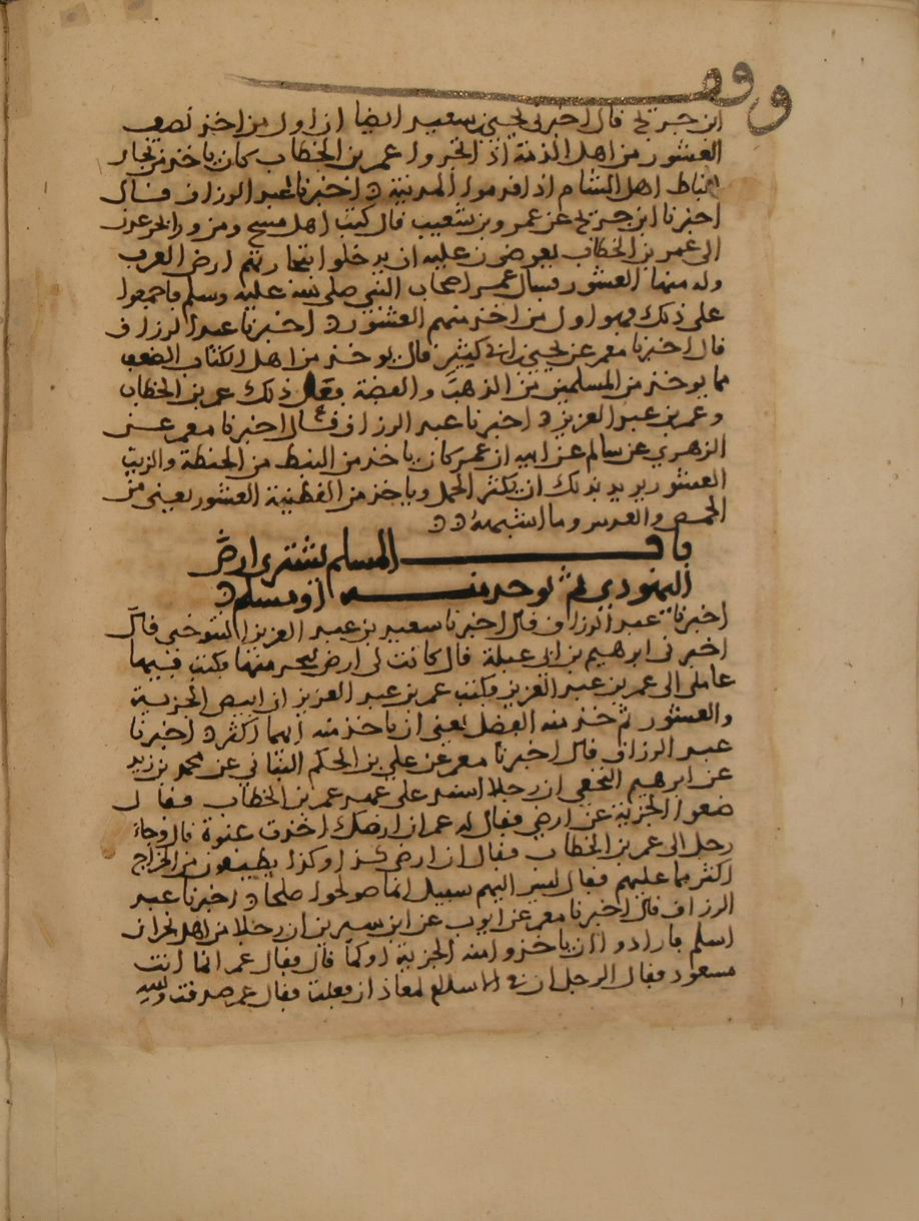 وقف
ابن جريج قال اخبرني يحيى بن سعيد ايضا ان اول من اخذ نصف
العشور من اهل الذمة اذا اتجروا عمر بن الخطاب كان ياخذ من تجار
انباط اهل الشام اذا قدموا المدينة اخبرنا عبد الرزاق قال
اخبرنا ابن جريج عن عمرو بن شعيب قال كتب اهل منبج ومن ورا بحر عدن
الى عمر بن الخطاب يعرضون عليه ان يدخلوا بتجارتهم ارض العرب
وله منها العشور فسال عمر اصحاب النبي صلى الله عليه وسلم فاجمعوا
على ذلك فهو اول من اخذ منهم العشور اخبرنا عبد الرزاق
قال اخبرنا معمر عن يحيى بن ابي كثير قال يوخذ من اهل الكتاب الضعف
مما يوخذ من المسلمين من الذهب والفضة فعل ذلك عمر بن الخطاب
وعمر بن عبد العزيز اخبرنا عبد الرزاق قال اخبرنا معمر عن
الزهري عن سالم عن ابيه ان عمر كان ياخذ من النبط من الحنطة والزيت
العشور يريد بذلك ان يكثر الحمل وياخذ من القطنية العشور يعني من
الحمص والعدس وما اشبهه
باب المسلم يشتري ارض
اليهودي ثم توخذ منه او يسلم
اخبرنا عبد الرزاق قال اخبرنا سعيد بن عبد العزيز التنوخي قال
اخبرني ابرهيم بن ابي عبلة قال كانت لي ارض بجزيتها فكتب فيها
عاملي الى عمر بن عبد العزيز فكتب عمر بن عبد العزيز ان اقبض الجزية
والعشور ثم خذ منه الفضل يعني ان ياخذ منه ايهما اكثر اخبرنا
عبد الرزاق قال اخبرنا معمر عن علي بن الحكم البناني عن محمد بن زيد
عن ابرهيم النخعي ان رجلا اسلم على عهد عمر بن الخطاب فقال
ضعوا الجزية عن ارضي فقال له عمر ان ارضك اخذت عنوة قال وجاء
رجل الى عمر بن الخطاب فقال ان ارض كذا وكذا يطيقون من الخراج
اكثر مما عليهم فقال ليس اليهم سبيل انما صولحوا صلحا اخبرنا عبد
الرزاق قال اخبرنا معمر عن ايوب عن ابن سيرين ان رجلا من اهل نجران
اسلم فارادوا ان ياخذوا منه الجزية او كما قال فقال عمر انما انت
متعوذ فقال الرجل ان في الاسلام لمعاذا ان فعلت فقال عمر صدقت والله